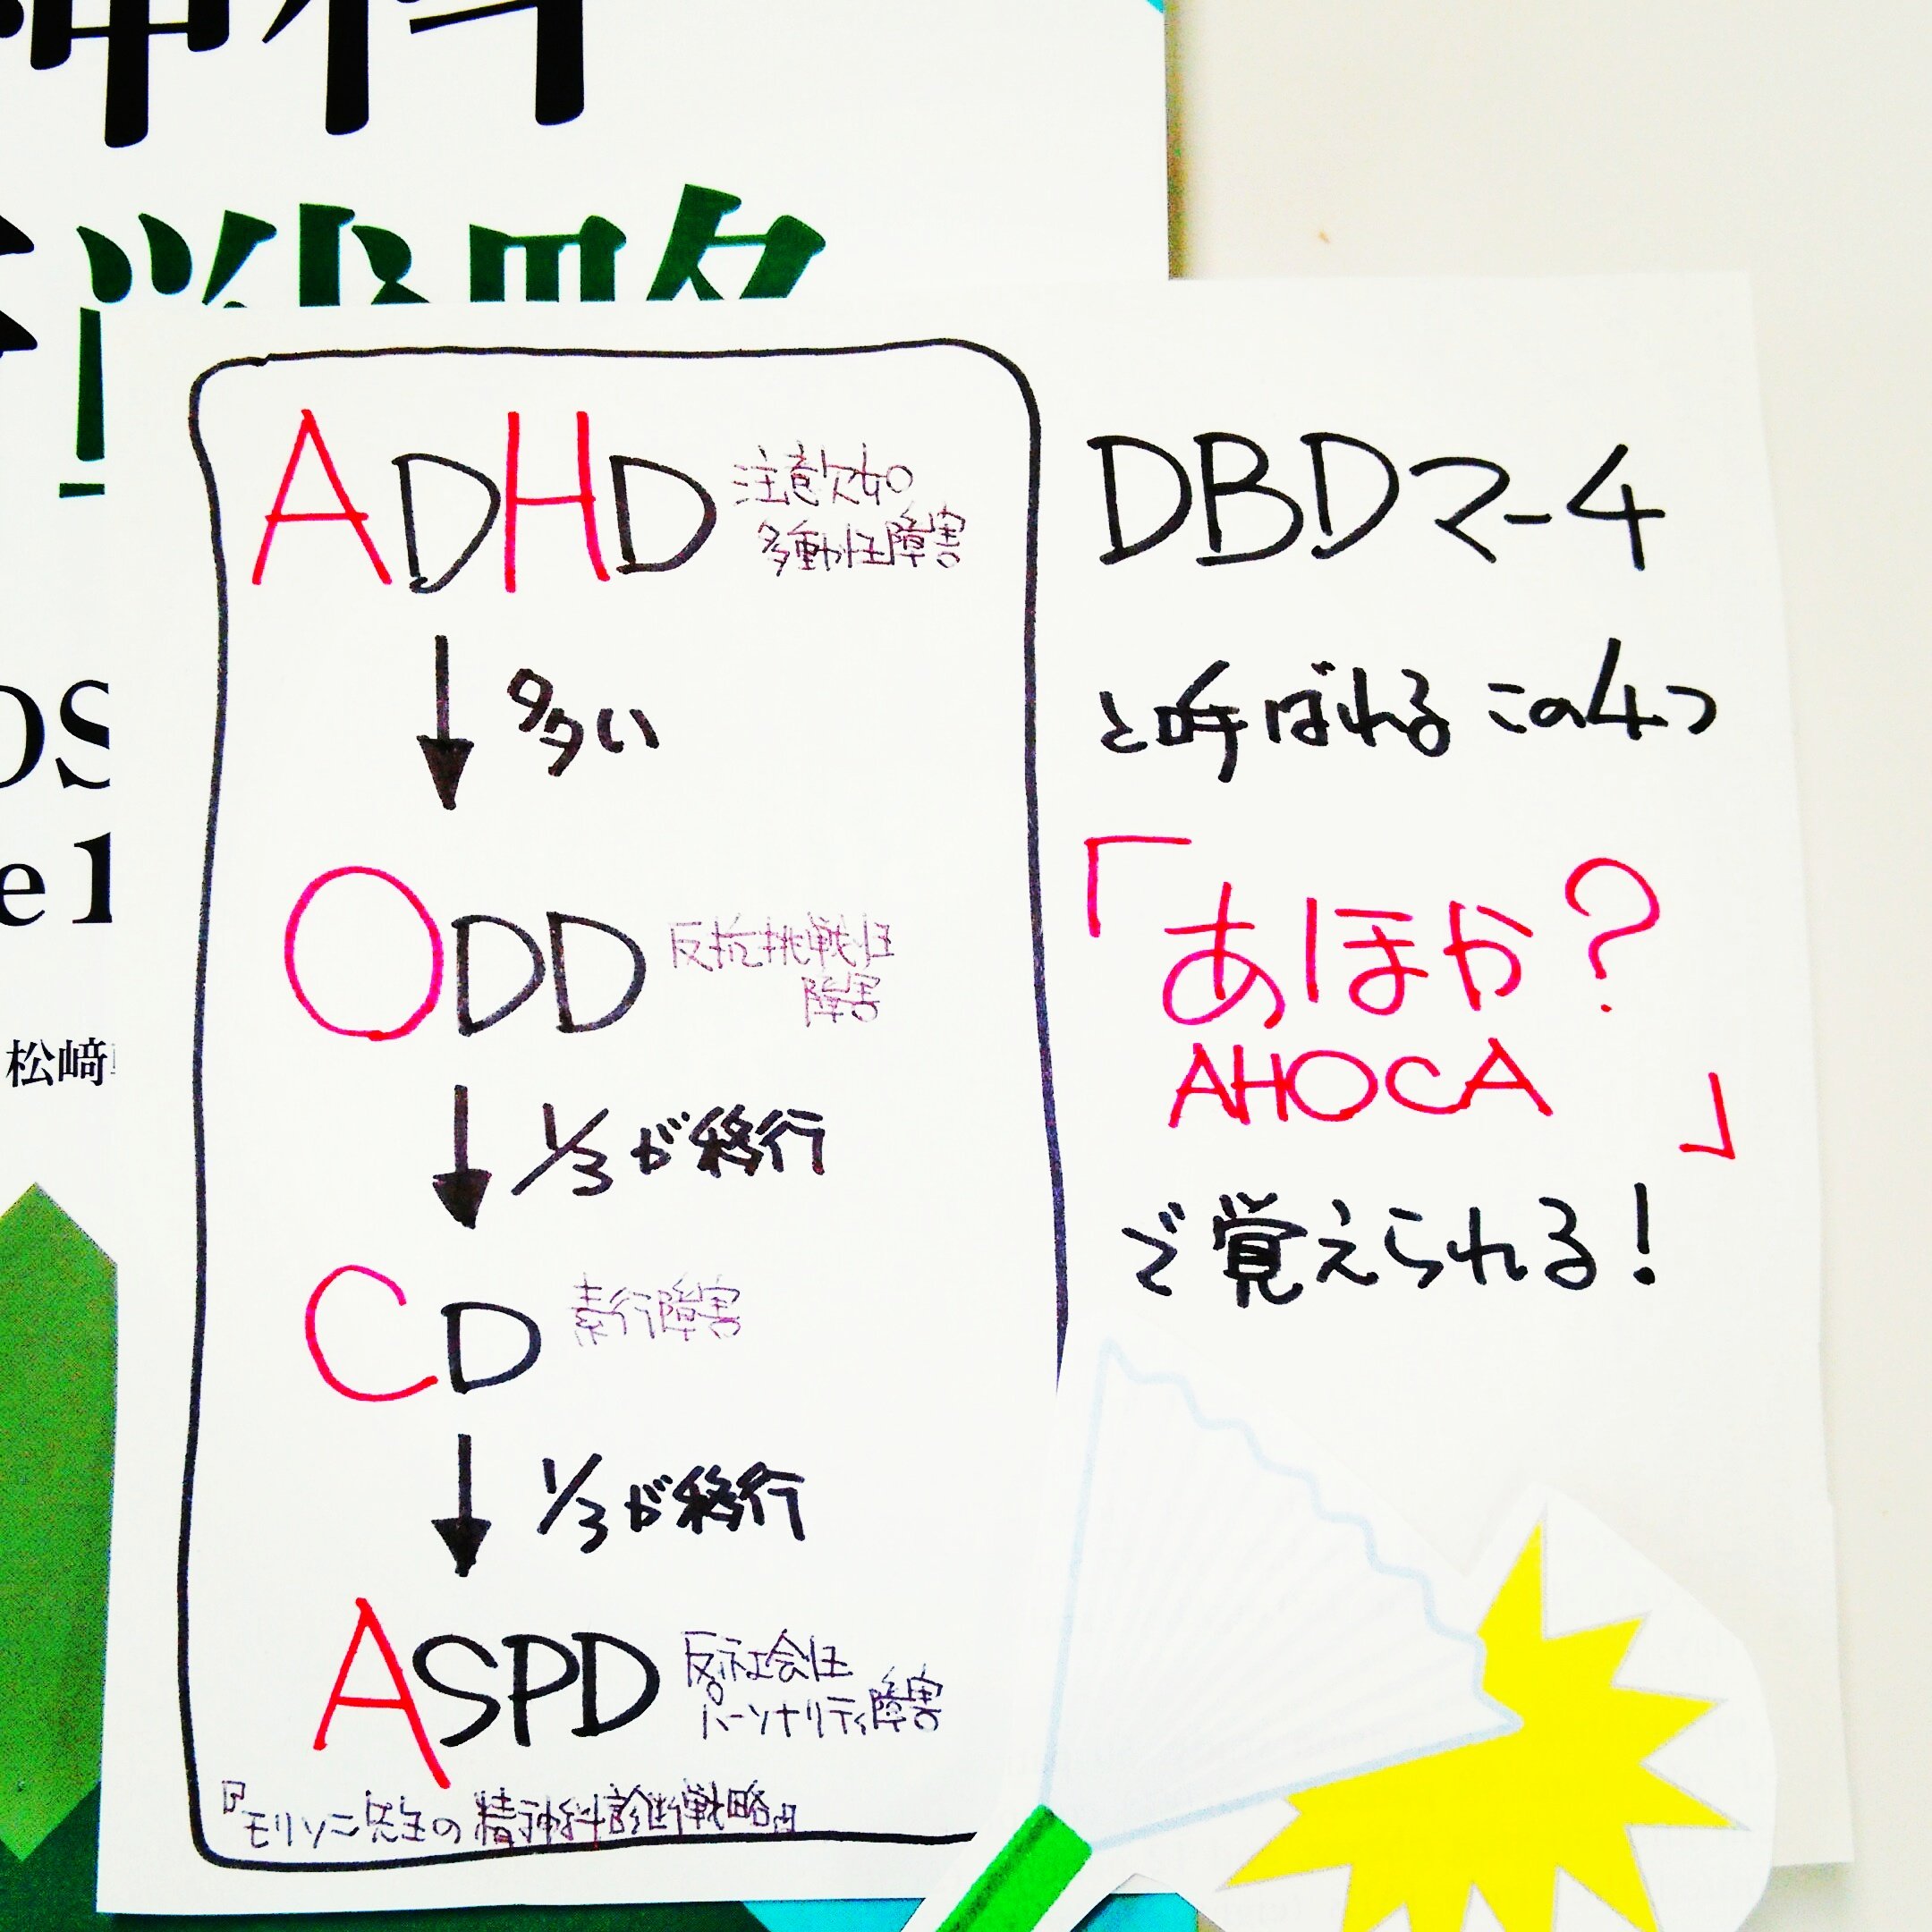 松﨑
ADHD 注意欠如
多動性障害
多い
ODD 反抗挑戦性
障害
1/3が移行
CD 素行障害
1/3が移行
ASPD 反社会性
パーソナリティ障害
『モリソン先生の精神科診断戦略』
DBDマーチ
と呼ばれるこの4つ
「あほか?
AHOCA」
で覚えられる!